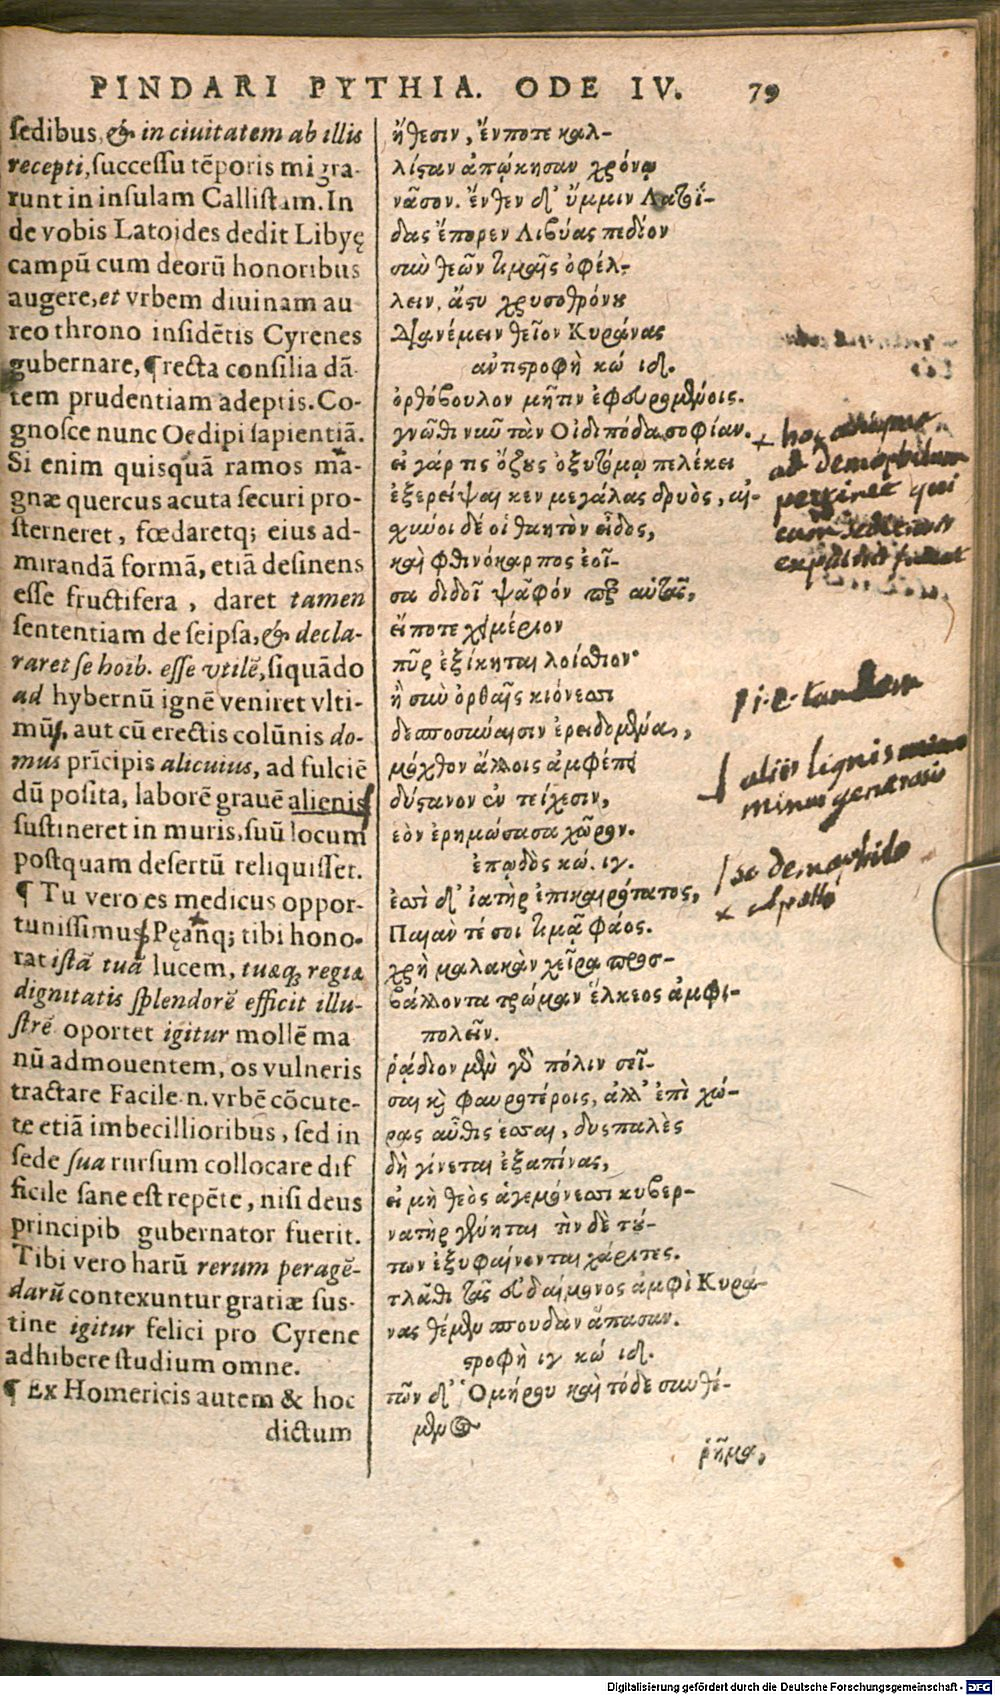 PINDARI PYTHIA. ODE IV. 79
sedibus, & in ciuitatem ab illis
recepti, successu tẽporis migra-
runt in insulam Callistam. In
de vobis Latoides dedit Libyę
campũ cum deorũ honoribus
augere, et vrbem diuinam au
reo throno insidẽtis Cyrenes
gubernare, ¶ recta consilia dã
tem prudentiam adeptis. Co-
gnosce nunc Oedipi sapientiã.
Si enim quisquã ramos ma-
gnæ quercus acuta securi pro-
sterneret, fœdaretq; eius ad-
mirandã formã, etiã desinens
esse fructifera, daret tamen
sententiam de seipsa, & decla-
raret se hoib. esse vtilẽ, siquãdo
ad hybernũ ignẽ veniret vlti-
mũ, aut cũ erectis colũnis do-
mus prĩcipis alicuius, ad fulciẽ
dũ posita, laborẽ grauẽ alienis
sustineret in muris, suũ locum
postquam desertũ reliquisset.
¶ Tu vero es medicus oppor-
tunissimus, Pęanq; tibi hono-
rat istã tuã lucem, tuæq; regiæ
dignitatis splendorẽ efficit illu-
strẽ oportet igitur mollẽ ma
nũ admouentem, os vulneris
tractare Facile .n. vrbẽ cõcute-
te etiã imbecillioribus, sed in
sede sua rursum collocare dif
ficile sane est repẽte, nisi deus
principib gubernator fuerit.
Tibi vero harũ rerum peragẽ-
darũ contexuntur gratiæ sus-
tine igitur felici pro Cyrene
adhibere studium omne.
¶ Ex Homericis autem & hoc
dictum
ἤθεσιν, ἔν ποτε καλ-
λίσαν ἀπῴκησαν χρόνῳ
νᾶσον. ἔνθεν δ' ὔμμιν Λατοΐ-
δας ἔπορεν Λιβύας πεδίον
σὺν θεῶν τιμαῖς ὀφέλ-
λειν, ἄστυ χρυσοθρόνου
Διανέμειν θεῖον Κυράνας
ἀντιστροφὴ κώ ιδ.
ὀρθόβουλον μῆτιν ἐφευρομένοις.
γνῶθι νῦν τὰν Οἰδιπόδα σοφίαν.
εἰ γάρ τις ὄζους ὀξυτόμῳ πελέκει
ἐξερείψαι κεν μεγάλας δρυὸς, αἰ-
χύνοι δέ οἱ θαητὸν εἶδος,
καὶ φθινόκαρπος ἐοῖ-
σα διδοῖ ψᾶφόν περ αὐτᾶς,
εἴ ποτε χειμέριον
πῦρ ἐξίκηται λοίσθιον·
ἢ σὺν ὀρθαῖς κιόνεσσι
δεσποσύναισιν ἐρειδομένα,
μόχθον ἄλλοις ἀμφέπει
δύστανον ἐν τείχεσιν,
ἑὸν ἐρημώσασα χῶρον.
ἐπῳδὸς κώ. ιγ.
ἐσσὶ δ' ἰατὴρ ἐπικαιρότατος,
Παιὰν τέ σοι τιμᾷ φάος.
χρὴ μαλακὰν χεῖρα προσ-
βάλλοντα τρώμαν ἕλκεος ἀμφι-
πολεῖν.
ῥᾴδιον μὲν γὸ πόλιν σεῖ-
σαι καὶ φαυροτέροις, ἀλλ' ἐπὶ χώ-
ρας αὖθις ἕσσαι, δυσπαλὲς
δὴ γίνεται ἐξαπίνας,
εἰ μὴ θεὸς ἁγεμόνεσσι κυβερ-
νατὴρ γένηται τὶν δὲ τού-
των ἐξυφαίνονται χάριτες.
τλᾶθι τᾶς εὐδαίμονος ἀμφὶ Κυρά-
νας θέμεν σπουδὰν ἅπασαν.
στροφὴ ιγ κώ ιδ.
τῶν δ' Ὁμήρου καὶ τόδε συνθέ-
μενος
ῥῆμα,
+ hoc
ad demophilum
pertinet qui
i.e. tandem
alijs lignis
minus generosis
sc demophilo
Digitalisierung gefördert durch die Deutsche Forschungsgemeinschaft - DFG